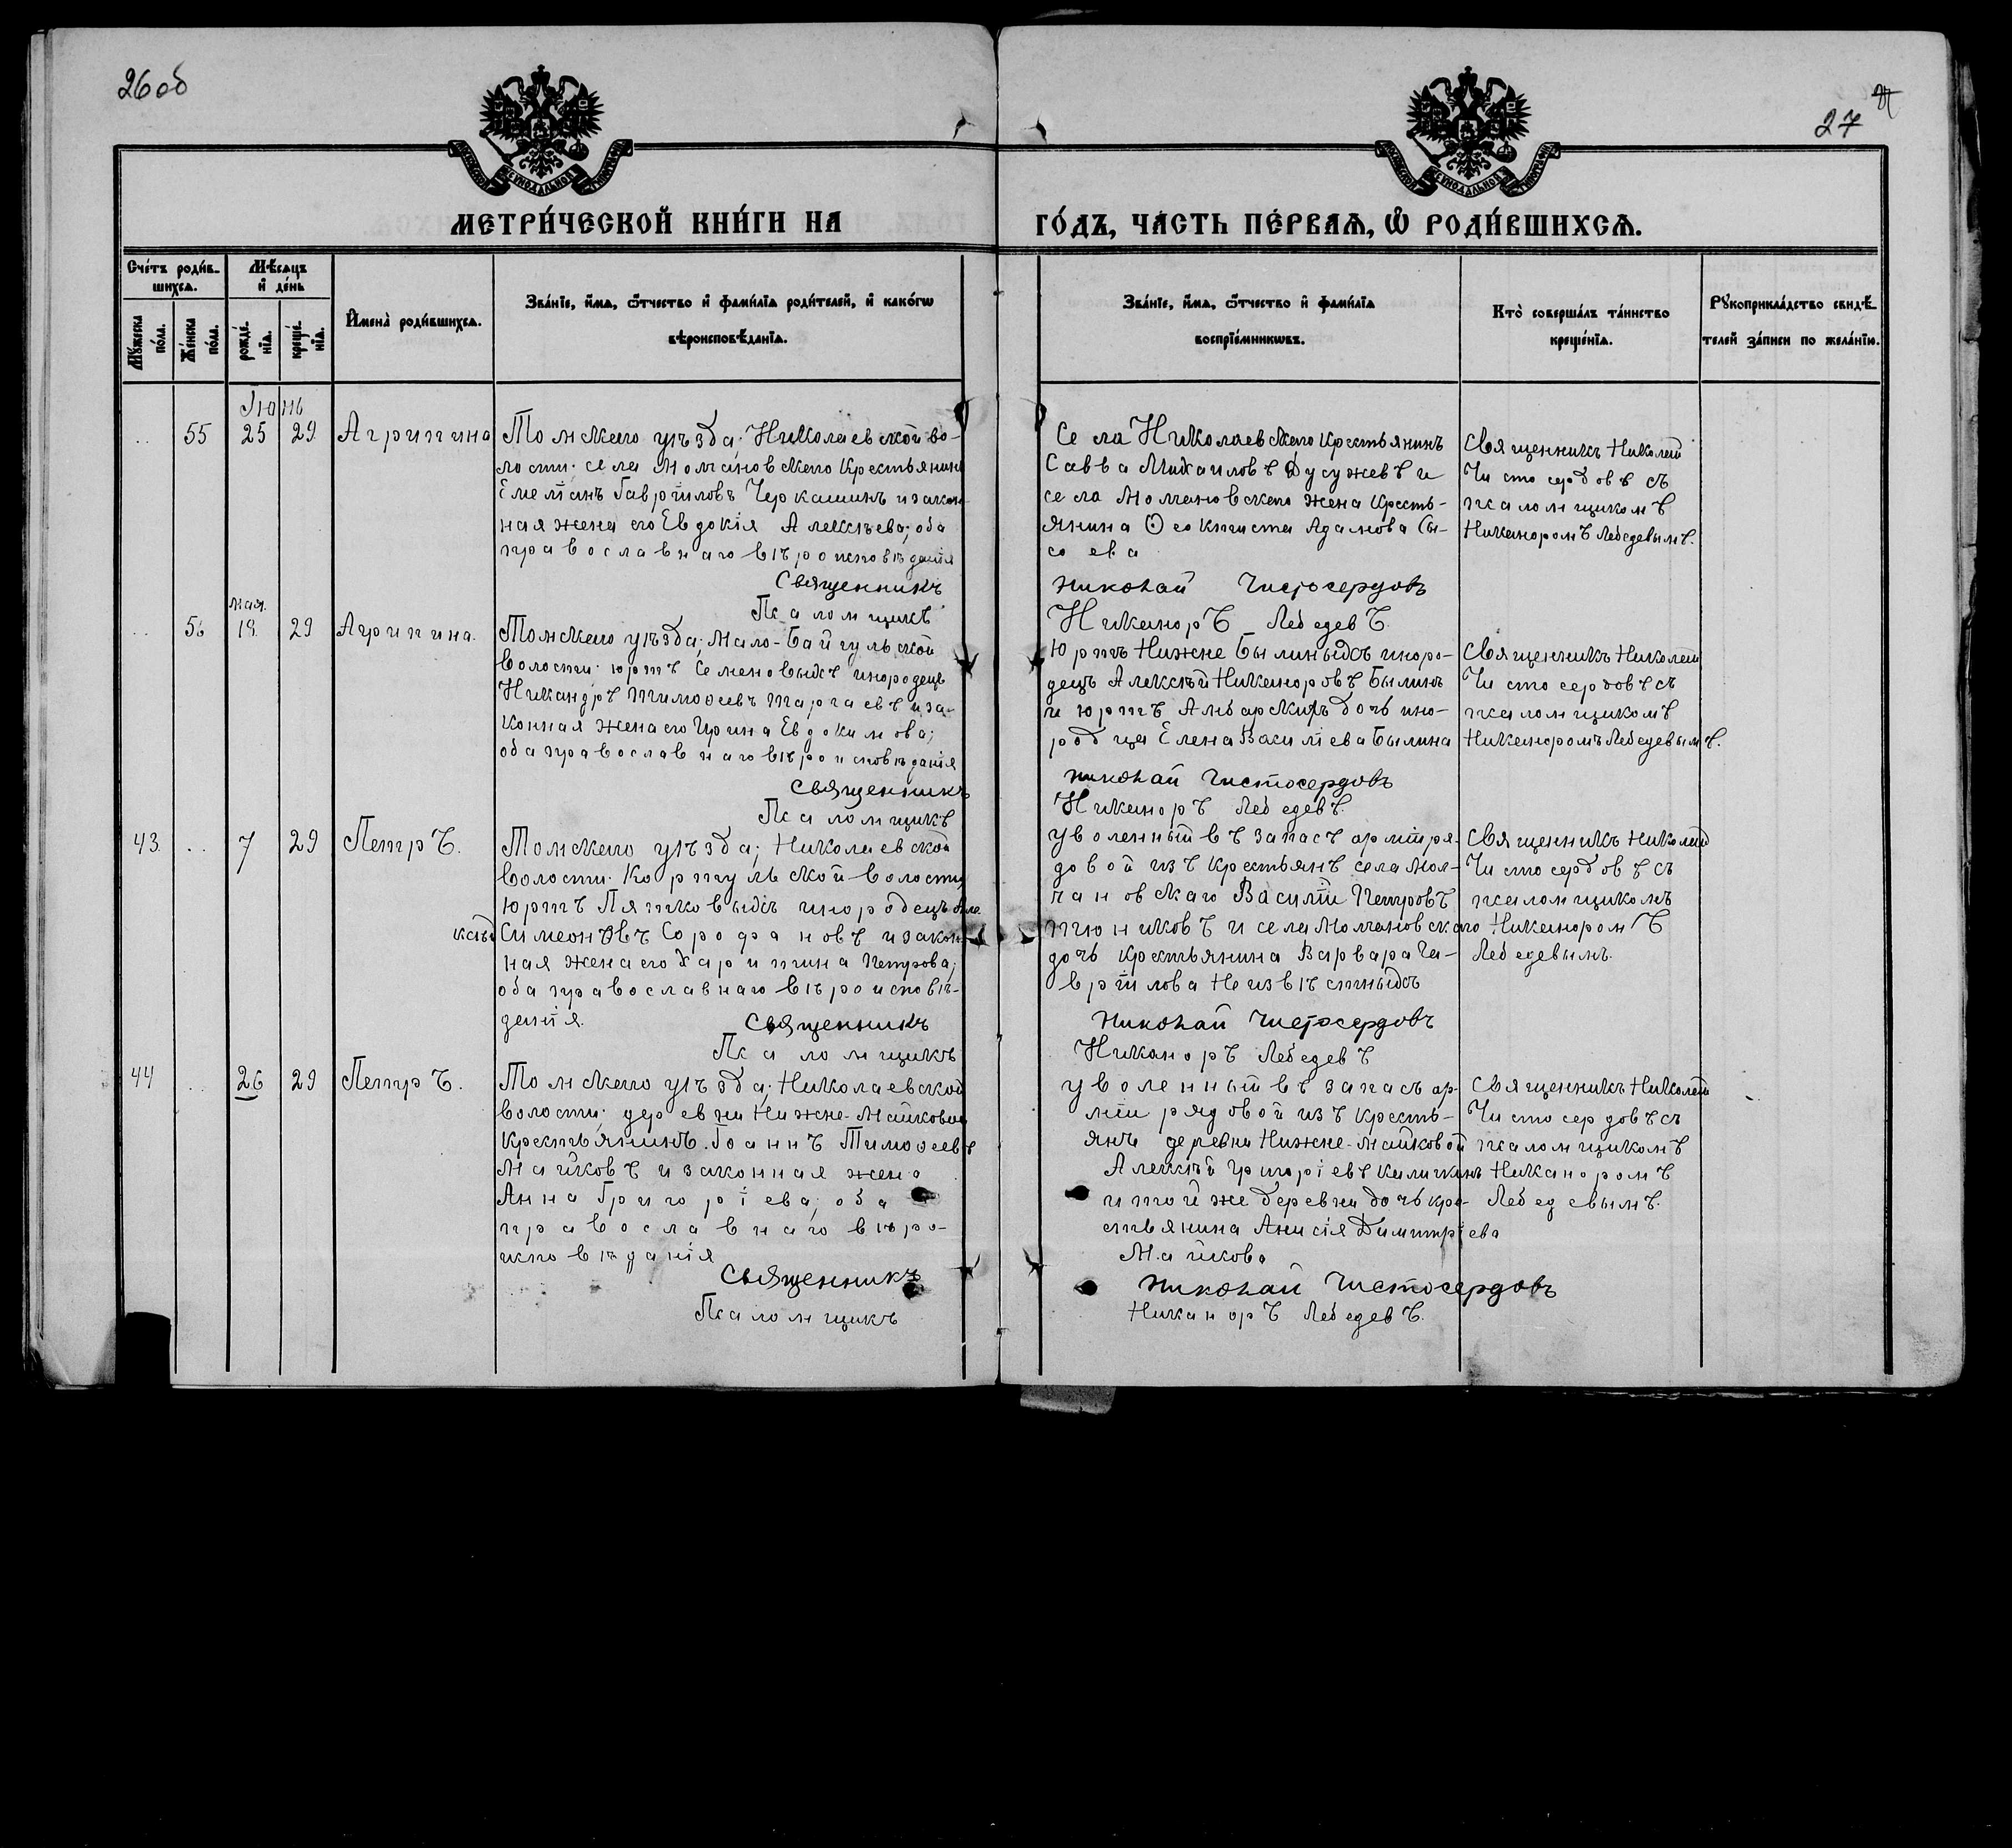 26 об
27
МЕТРИ́ЧЕСКОЙ КНИ́ГИ НА ГО́ДЪ, ЧА́СТЬ ПЕ́РВАѦ, Ѽ РОДИ́ВШИХСѦ.
Сче́тъ роди́в-
шихсѧ.
Мѣ́сѧцъ
и҆ де́нь
Мꙋ́жеска по́ла.
Же́нска по́ла.
рожде́-
нїѧ.
креще́-
нїѧ.
И҆мена̀ роди́вшихсѧ.
Зва́нїе, и҆́мѧ, ѻ҆́тчество и҆ фами́лїѧ роди́телей, и҆ како́гѡ
вѣроисповѣ́данїѧ.
Зва́нїе, и҆́мѧ, ѻ҆́тчество и҆ фами́лїѧ
воспрїе́мникѡвъ.
Кто̀ соверша́лъ та́инство
креще́нїѧ.
Рꙋкоприкла́дство свидѣ́-
телей за́писи по жела́нїю.
Iюнь
.. 55 25 29 Агрипина
Томскаго уѣзда; Николаевской во-
лости села Молчановскаго крестьянинъ
Емелiанъ Гаврiиловъ Черкашинъ и закон-
ная жена его Евдокiя Алексѣева; оба
православнаго вѣроисповѣданiя
Священникъ
Псаломщикъ
Села Николаевскаго крестьянинъ
Савва Михаиловъ Дусужевъ и
села Молчановскаго жена кресть-
янина Ѳеоктиста Адамова Сы-
соева
Николай Чистосердовъ
Никаноръ Лебедевъ.
Священникъ Николай
Чистосердовъ съ
псаломщикомъ
Никаноромъ Лебедевымъ.
мая.
.. 56 18 29 Агрипина.
Томскаго уѣзда; Мало-Байгульской
волости юртъ Семеновыхъ инородецъ
Никандръ Тимоѳеевъ Таргаевъ и за-
конная жена его Ирина Евдокимова;
оба православнаго вѣроисповѣданiя
Священникъ
Псаломщикъ
Юртъ Нижне Былиныхъ иноро-
децъ Алексѣй Никаноровъ Былинъ
и юртъ Амбарскихъ дочь ино-
родца Елена Василiева Былина
Николай Чистосердовъ
Никаноръ Лебедевъ.
Священникъ Николай
Чистосердовъ съ
псаломщикомъ
Никаноромъ Лебедевымъ.
43. .. 7 29 Петръ.
Томскаго уѣзда; Николаевской
волости. Корпульской волости
юртъ Пятковыхъ инородецъ Але
ксѣй Симеоновъ Сорофановъ и закон-
ная жена его Харитина Петрова;
оба православнаго вѣроисповѣ-
данiя.
Священникъ
Псаломщикъ
уволенный въ запасъ армiи ря-
довой изъ крестьянъ села Мол-
чановскаго Василiй Петровъ
Тюниковъ и села Молчановскаго
дочь крестьянина Варвара Га-
врiилова Неизвѣстныхъ
Николай Чистосердовъ
Никаноръ Лебедевъ
Священникъ Николай
Чистосердовъ съ
псаломщикомъ
Никаноромъ
Лебедевымъ.
44 .. 26 29 Петръ.
Томскаго уѣзда; Николаевской
волости; деревни Нижне-Майковой
крестьянинъ Iоаннъ Тимоѳеевъ
Майковъ и законная жена
Анна Григорiева; оба
православнаго вѣро-
исповѣданiя
Священникъ
Псаломщикъ
уволенный въ запасъ ар-
мiи рядовой изъ кресть-
янъ деревни Нижне-Майковой
Алексѣй Григорiевъ Каличкинъ
и той же деревни дочь кре-
стьянина Анисiя Димитрiева
Майкова
Николай Чистосердовъ
Никаноръ Лебедевъ.
Священникъ Николай
Чистосердовъ съ
псаломщикомъ
Никаноромъ
Лебедевымъ.